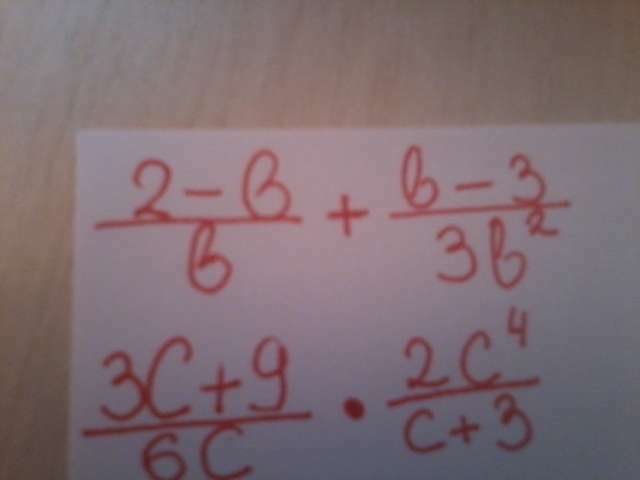 2-b/b + b-3/3b²
3c+9/6c • 2c⁴/c+3